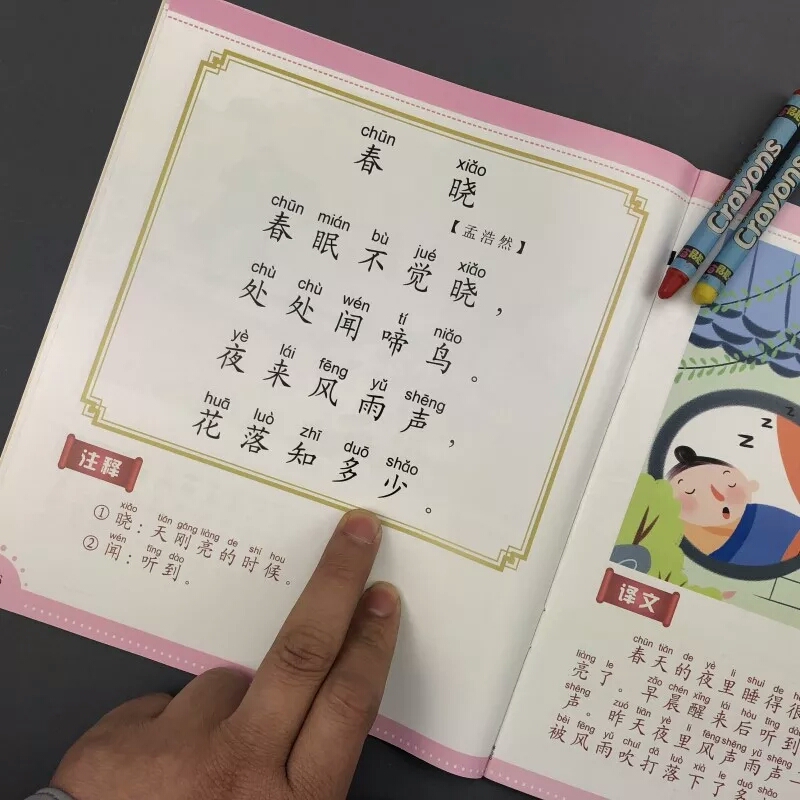 chūn xiǎo
春 晓
【孟浩然】
chūn mián bù jué xiǎo
春眠不觉晓，
chù chù wén tí niǎo
处处闻啼鸟。
yè lái fēng yǔ shēng
夜来风雨声，
huā luò zhī duō shǎo
花落知多少。
注释
xiǎo tiān gāng liàng de shí hou
①晓：天刚亮的时候。
wén tīng dào
②闻：听到。
Crayons
Crayons
z z z
译文
chūn tiān de yè li shuì de
春天的夜里睡得很
liàng le zǎo chén xǐng lái hòu tīng dào
亮了。早晨醒来后听到
shēng zuó tiān yè li fēng shēng yǔ shēng
声。昨天夜里风声雨声一
bèi fēng yǔ chuī dǎ luò xià le duō
被风雨吹打落下了多